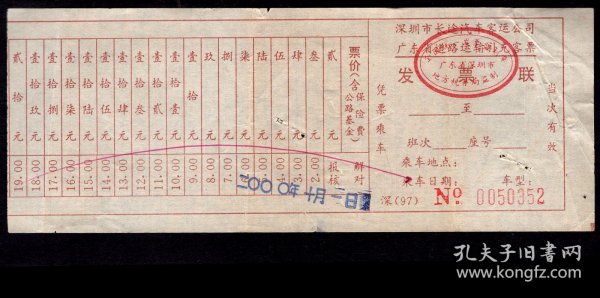 深圳市长途汽车客运公司
广东省道路运输补充客票
发票联
广东省深圳市
地方税务局监制
凭票乘车
当次有效
至
班次 座号
乘车地点：
乘车日期： 车型：
深(97) № 0050352
票价(含保险费公路基金)
贰元
叁元
肆元
伍元
陆元
柒元
捌元
玖元
壹拾元
壹拾壹元
壹拾贰元
壹拾叁元
壹拾肆元
壹拾伍元
壹拾陆元
壹拾柒元
壹拾捌元
壹拾玖元
贰拾元
报核
解对
2.00
3.00
4.00
5.00
6.00
7.00
8.00
9.00
10.00
11.00
12.00
13.00
14.00
15.00
16.00
17.00
18.00
19.00
孔夫子旧书网
www.kongfz.com